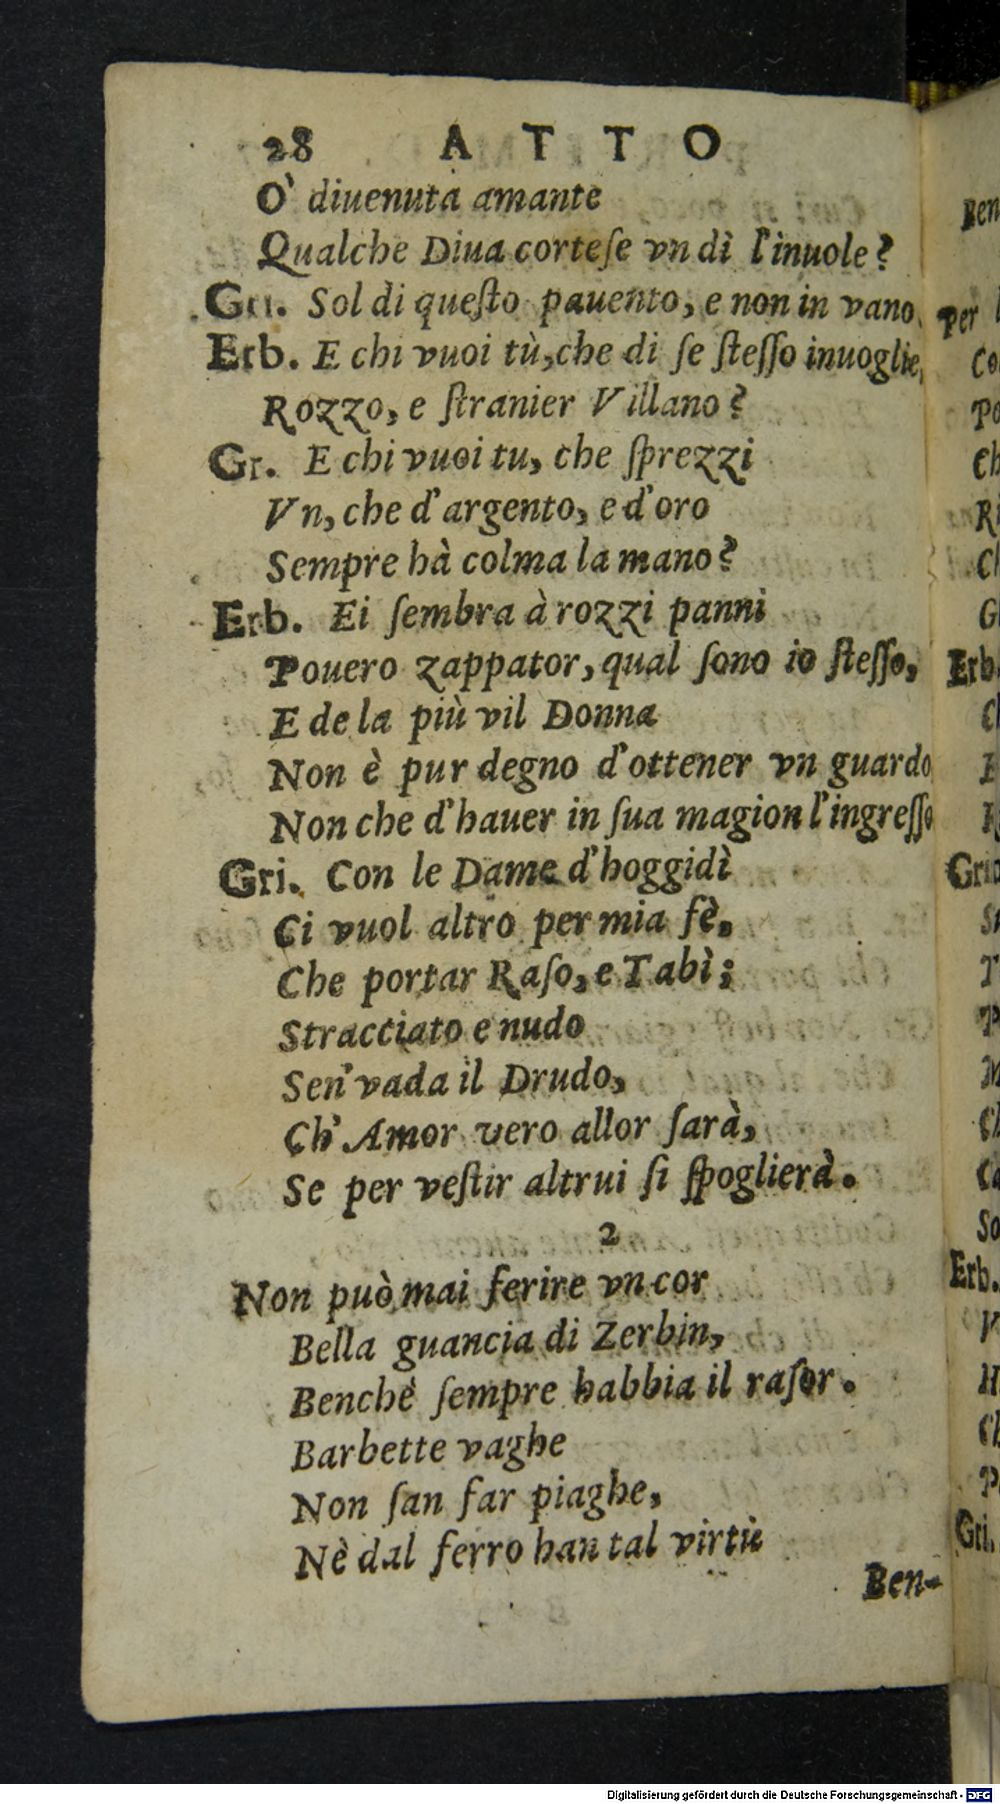 28 ATTO
O' diuenuta amante
Qualche Diua corteſe vn dì l'inuole?
Gri. Sol di queſto pauento, e non in vano.
Erb. E chi vuoi tù, che di ſe ſteſſo inuoglie,
Rozzo, e ſtranier Villano?
Gr. E chi vuoi tu, che ſprezzi
Vn, che d'argento, e d'oro
Sempre hà colma la mano?
Erb. Ei ſembra à rozzi panni
Pouero zappator, qual ſono io ſteſſo,
E de la più vil Donna
Non è pur degno d'ottener vn guardo
Non che d'hauer in ſua magion l'ingreſſo
Gri. Con le Dame d'hoggidì
Ci vuol altro per mia fè,
Che portar Raſo, e Tabì;
Stracciato e nudo
Sen' vada il Drudo,
Ch' Amor vero allor ſarà,
Se per veſtir altrui ſi ſpoglierà.
2
Non può mai ferire vn cor
Bella guancia di Zerbin,
Benchè ſempre habbia il raſor.
Barbette vaghe
Non ſan far piaghe,
Nè dal ferro han tal virtù
Ben-
Ben
Per
Co
Po
Ch
Ri
Ch
G
Erb
C
E
R
Gri
Si
T
P
M
Ch
Ca
So
Erb.
V
H
Ch
P
Gri.
Digitalisierung gefördert durch die Deutsche Forschungsgemeinschaft - DFG